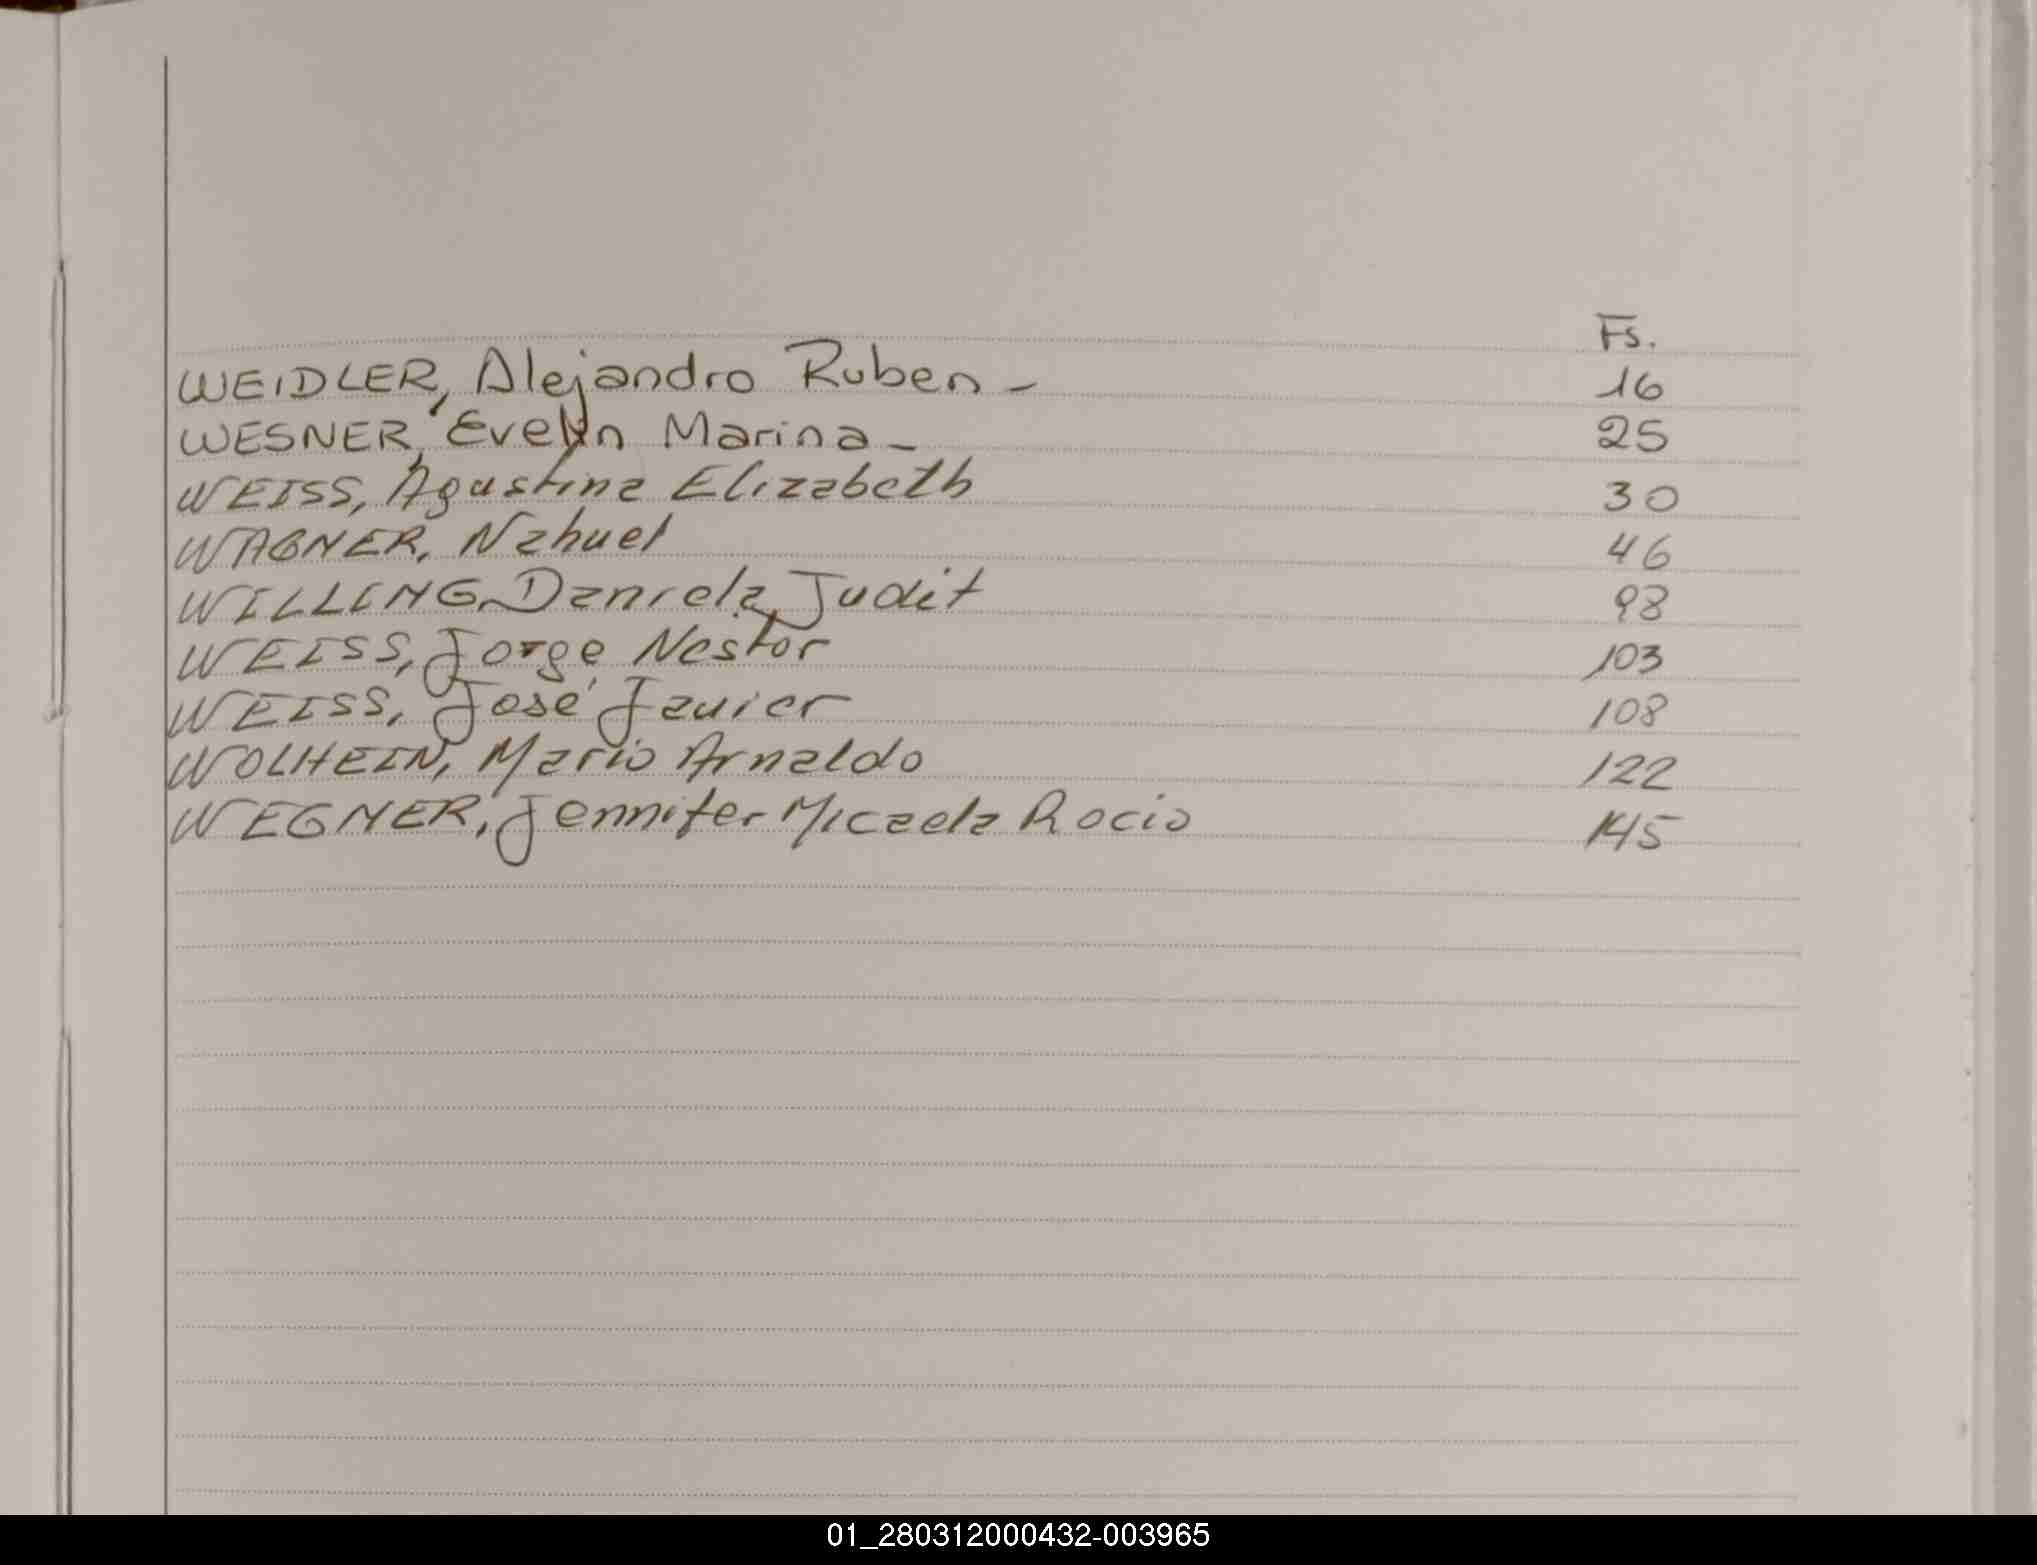 Fs.
WEIDLER, Alejandro Ruben - 16
WESNER, Evelyn Marina - 25
WEISS, Agustina Elizabeth 30
WAGNER, Nahuel 46
WILLING, Daniela Judit 98
WEISS, Jorge Nestor 103
WEISS, José Javier 108
WOLHEIN, Mario Arnaldo 122
WEGNER, Jennifer Micaela Rocio 145
01_280312000432-003965